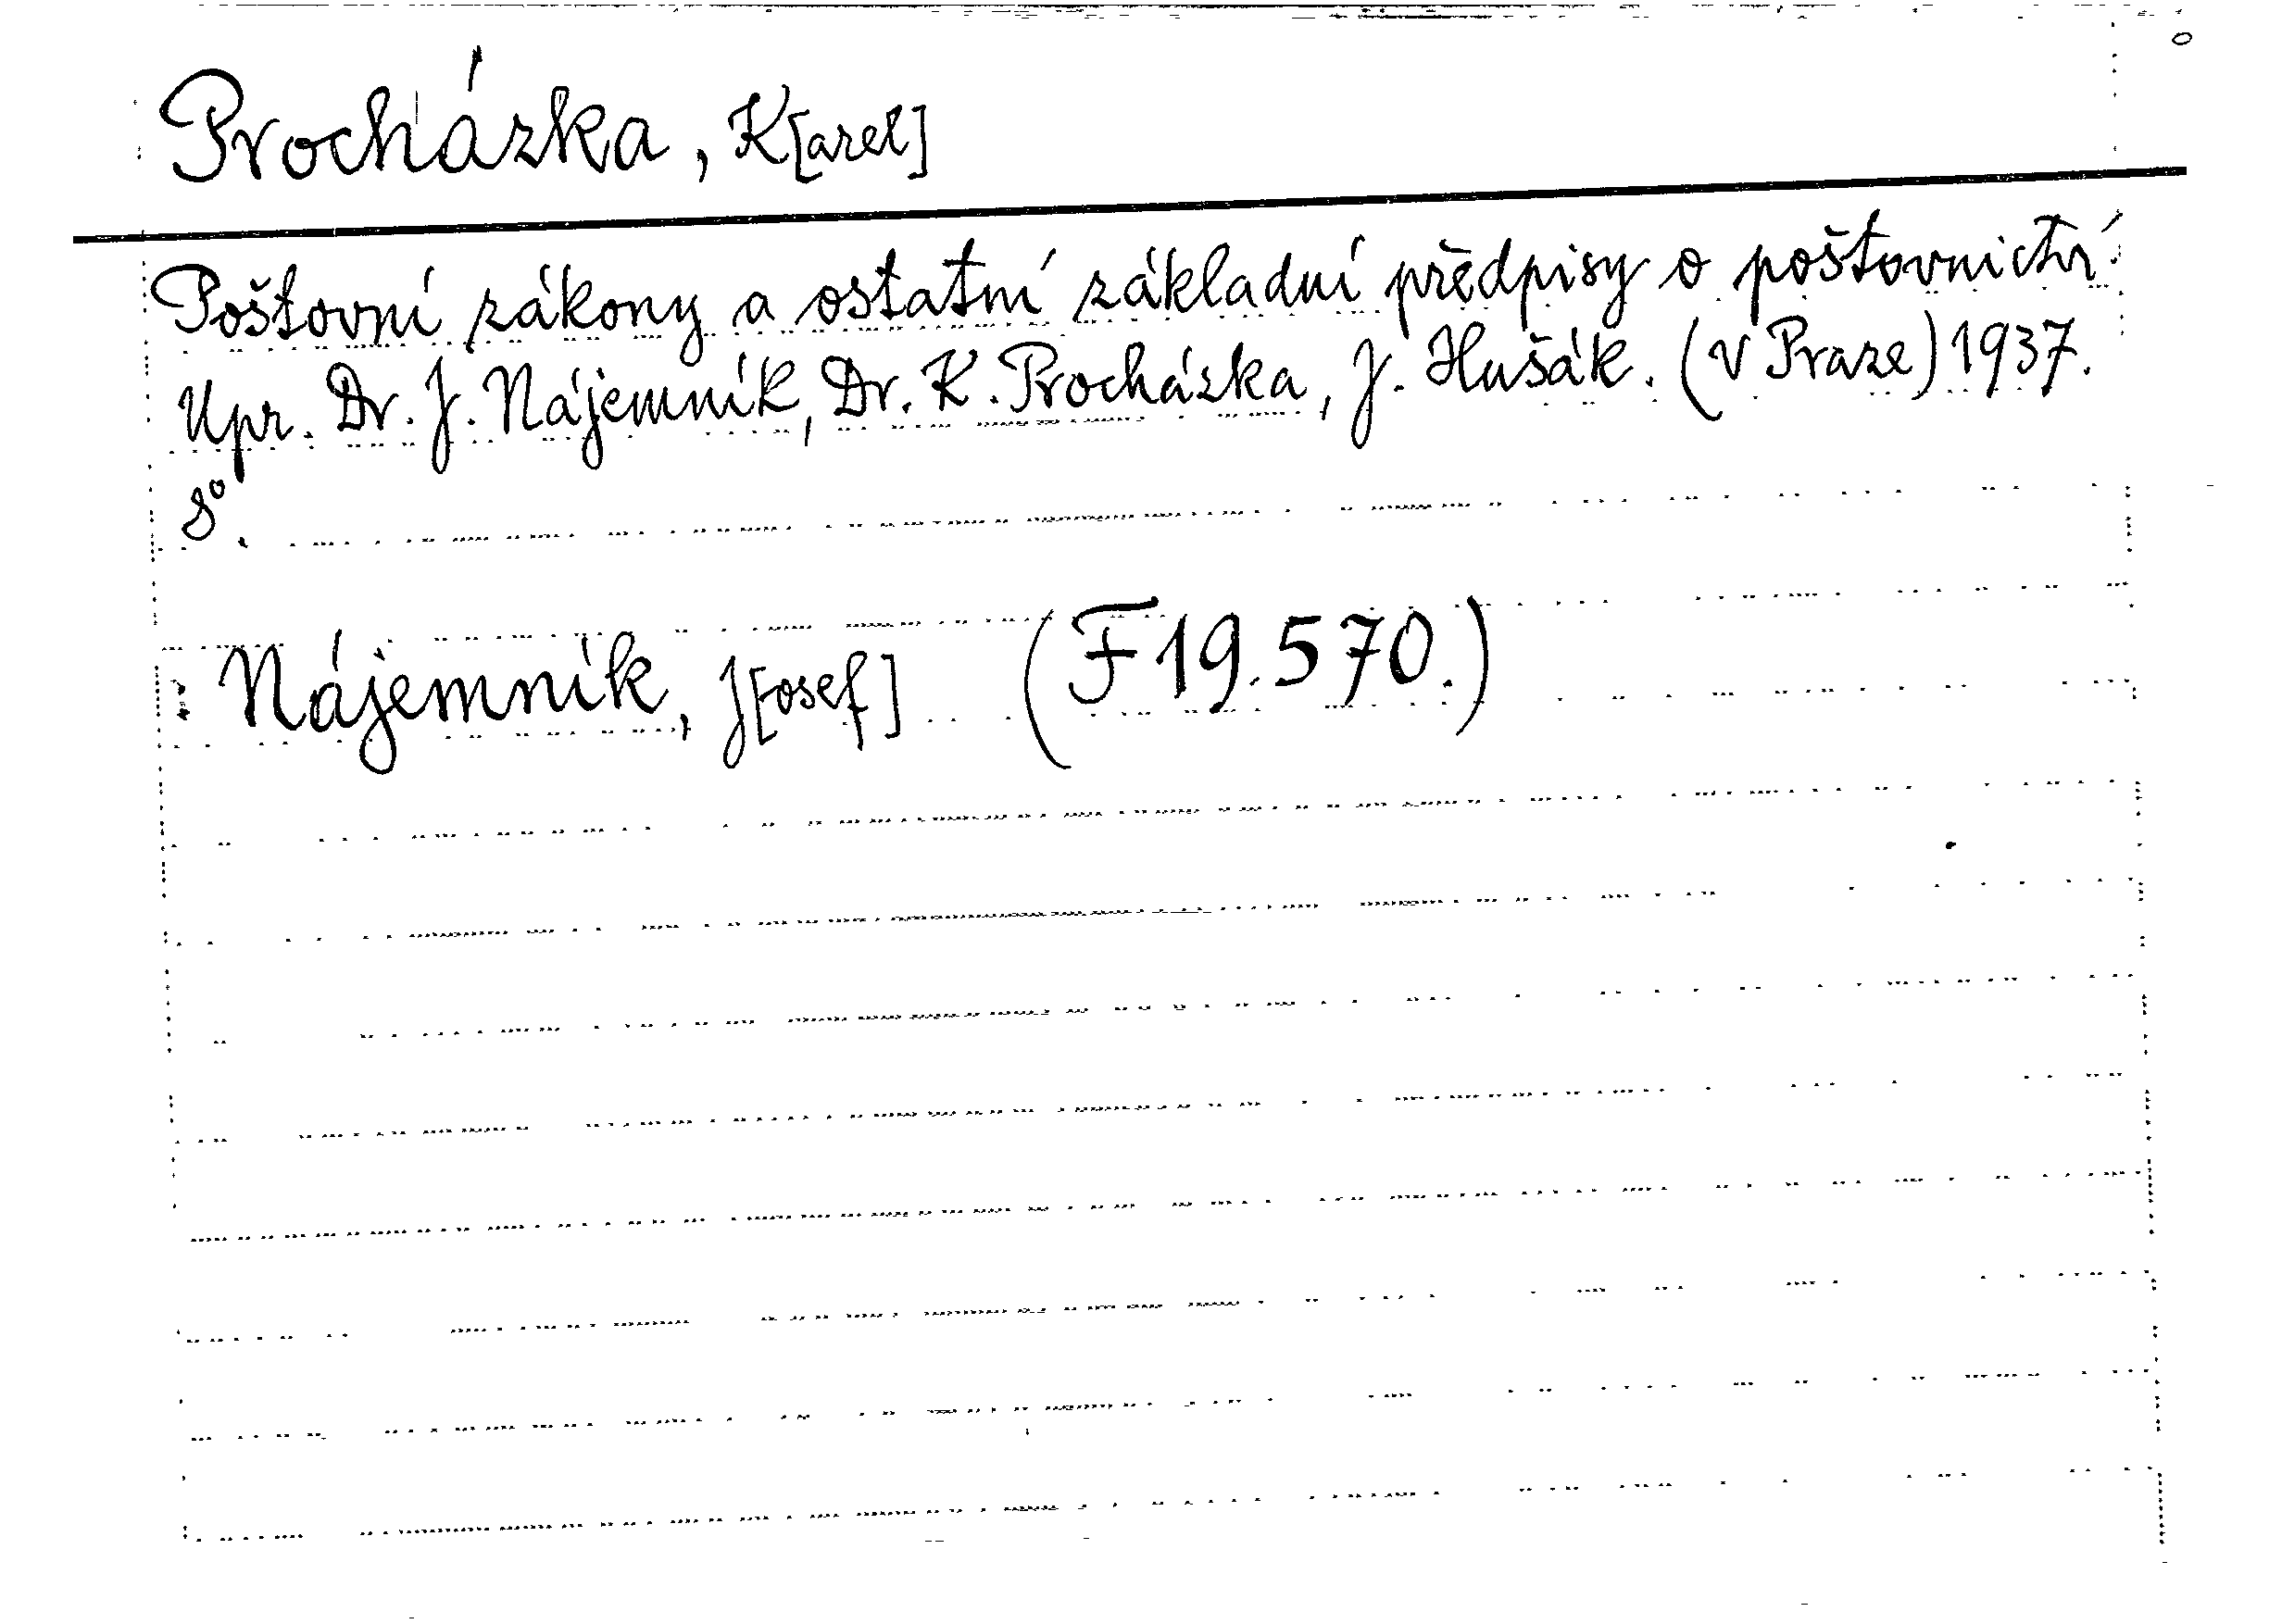 Procházka, K[arel]
Poštovní zákony a ostatní základní předpisy o poštovnictví.
Upr. Dr. J. Nájemník, Dr. K. Procházka, J. Hušák. (V Praze) 1937.
8°.
Nájemník, J[osef] (F 19.570.)